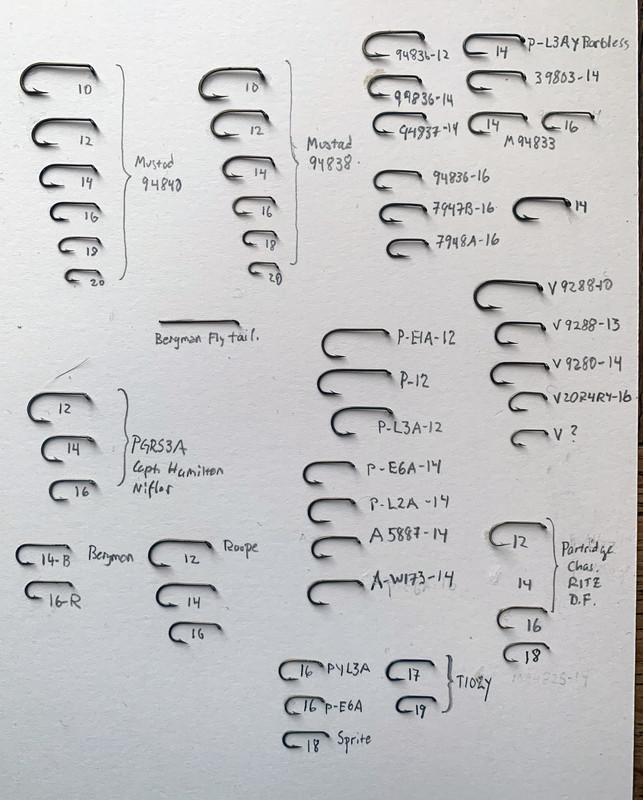 10
12
14
16
18
20
Mustad
94840
10
12
14
16
18
20
Mustad
94838.
94836-12
94836-14
94837-14
94836-16
7947B-16
7948A-16
14 P-L3AY Barbless
39803-14
14 16
M94833
14
Bergman Fly tail.
V 9288-10
V 9288-13
V 9280-14
V2024RY-16
V ?
P-E1A-12
P-12
P-L3A-12
P-E6A-14
P-L2A-14
A 5887-14
A-W173-14
12
14
16
PGRS3A
Capt. Hamilton
Niflor
14-B Bergman
16-R
12 Roope
14
16
12
14
16
18
Partridge
Chas.
RITZ
D.F.
16 PYL3A
16 P-E6A
18 Sprite
17
19
T102Y